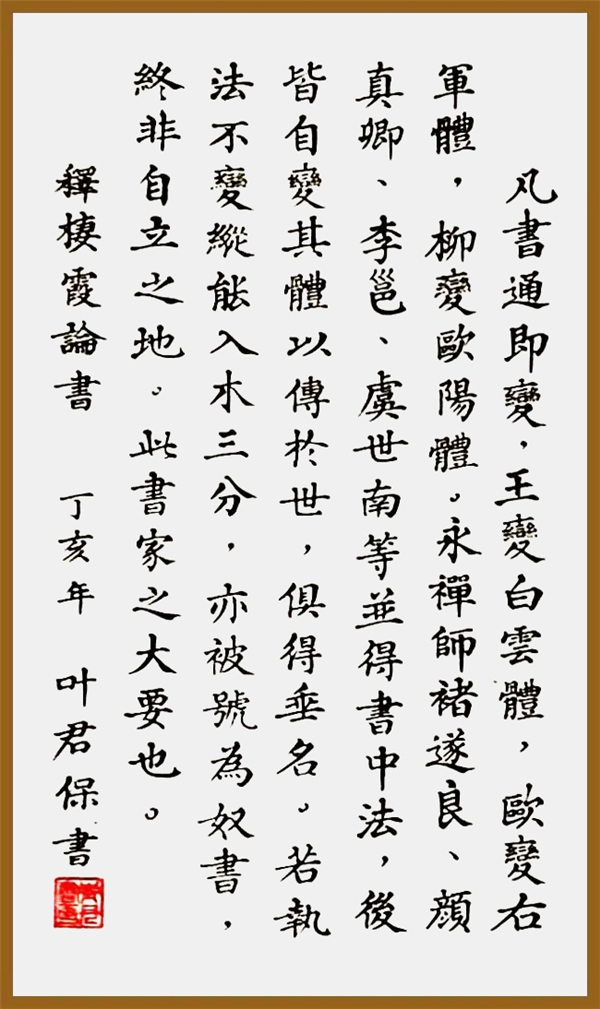 凡書通即變，王變白雲體，歐變右
軍體，柳變歐陽體。永禪師褚遂良、顏
真卿、李邕、虞世南等並得書中法，後
皆自變其體以傳於世，俱得垂名。若執
法不變縱能入木三分，亦被號為奴書，
終非自立之地。此書家之大要也。
釋棲霞論書 丁亥年 叶君保書